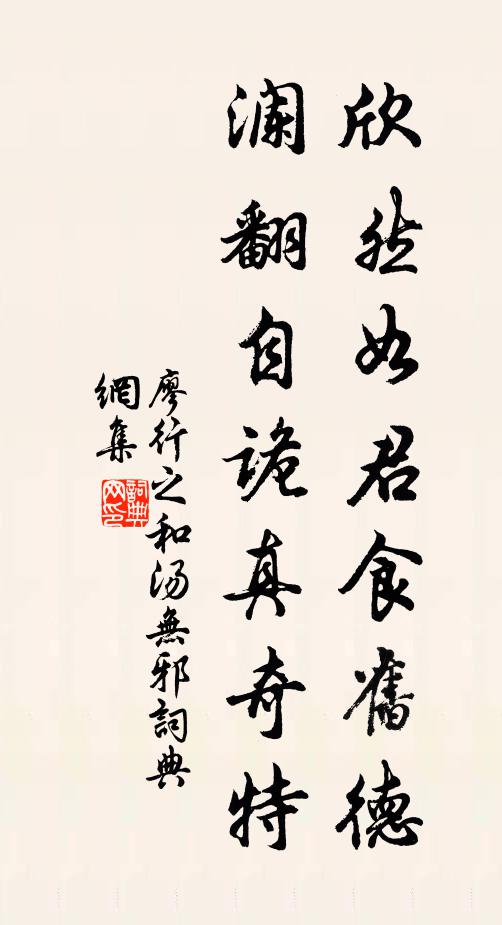 欣然如君食舊德
澜翻自詭真奇特
廖行之和汤無邪詞典
網集
詞典
网印